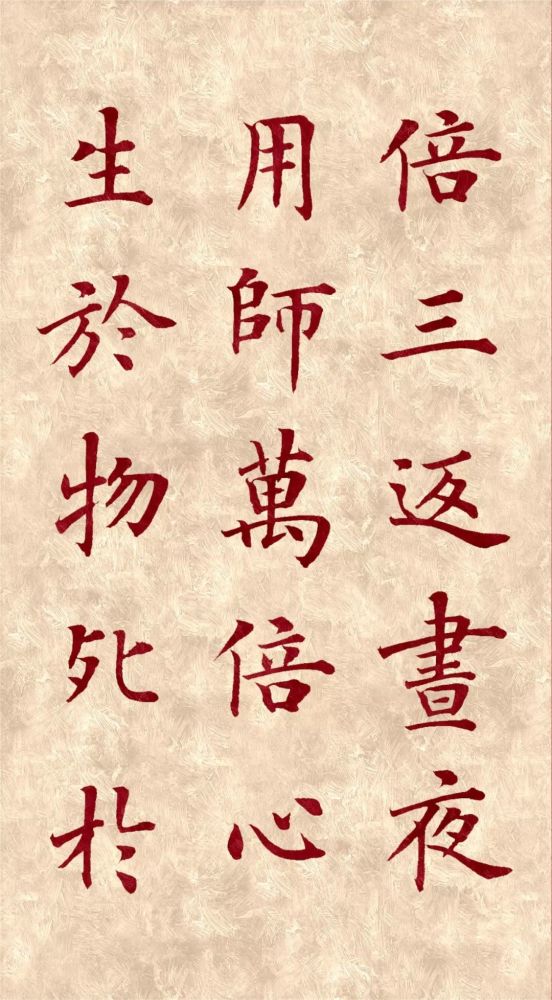 倍三返晝夜
用師萬倍心
生於物死於